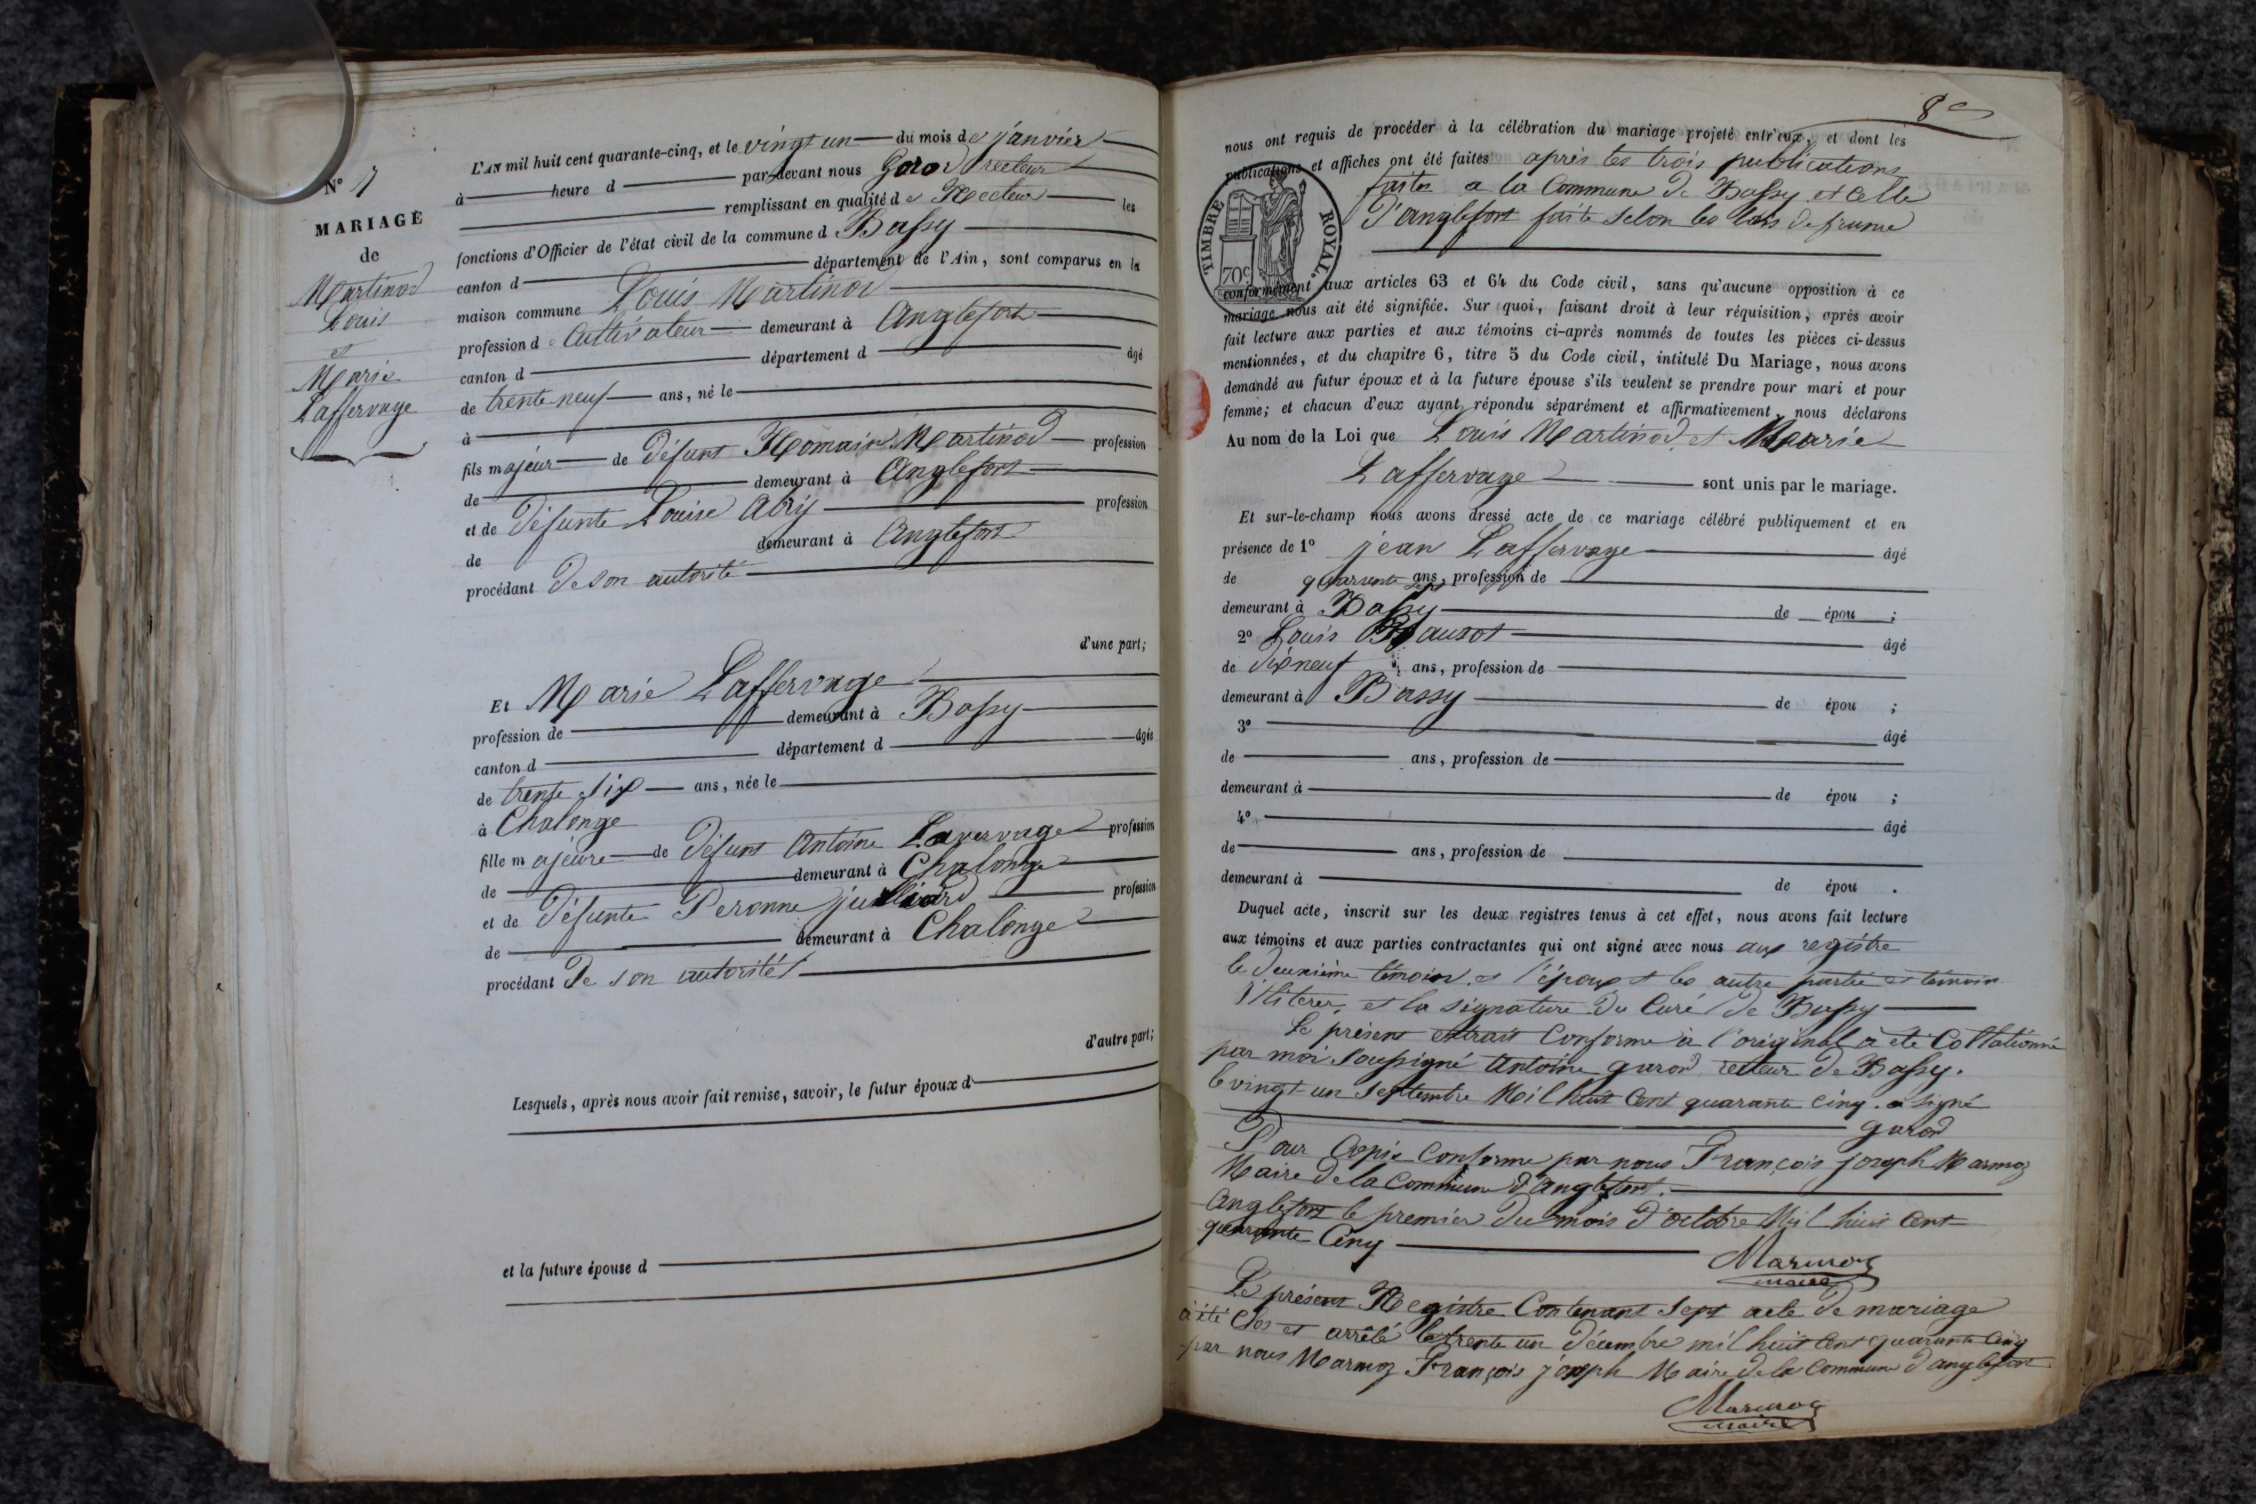 N° 7
MARIAGE
de
Martinod
Louis
et
Marie
Laffervage
L'AN mil huit cent quarante-cinq, et le vingt un du mois de janvier
à heure d par-devant nous Garod recteur
remplissant en qualité de Recteur les
fonctions d'Officier de l'état civil de la commune d Bassy
canton d département de l'Ain, sont comparus en la
maison commune Louis Martinod
profession de Cultivateur demeurant à Anglefort
canton d département d âgé
de trente neuf ans, né le
à
fils majeur de défunt Romain Martinod profession
de demeurant à Anglefort
et de défunte Louise Abry profession
de demeurant à Anglefort
procédant de son autorité
d'une part;
Et Marie Laffervage
profession de demeurant à Bassy
canton d département d âgée
de trente six ans, née le
à Chalonge
fille majeure de défunt Antoine Lavervage profession
de demeurant à Chalonge
et de défunte Peronne julliard profession
de demeurant à Chalonge
procédant De son autorité
d'autre part;
Lesquels, après nous avoir fait remise, savoir, le futur époux d
et la future épouse d
8e
nous ont requis de procéder à la célébration du mariage projeté entr'eux, et dont les
publications et affiches ont été faites après les trois publications
faites a la Commune de Bassy et celle
d'anglefort faite selon les lois de france
TIMBRE ROYAL.
70c
conformément aux articles 63 et 64 du Code civil, sans qu'aucune opposition à ce
mariage nous ait été signifiée. Sur quoi, faisant droit à leur réquisition, après avoir
fait lecture aux parties et aux témoins ci-après nommés de toutes les pièces ci-dessus
mentionnées, et du chapitre 6, titre 5 du Code civil, intitulé Du Mariage, nous avons
demandé au futur époux et à la future épouse s'ils veulent se prendre pour mari et pour
femme; et chacun d'eux ayant répondu séparément et affirmativement, nous déclarons
Au nom de la Loi que Louis Martinod et Marie
Laffervage sont unis par le mariage.
Et sur-le-champ nous avons dressé acte de ce mariage célébré publiquement et en
présence de 1° jean Laffervage âgé
de quarante sept ans, profession de
demeurant à Bassy de épou ;
2° Louis âgé
de dixneuf ans, profession de
demeurant à Bassy de épou ;
3° âgé
de ans, profession de
demeurant à de épou ;
4° âgé
de ans, profession de
demeurant à de épou .
Duquel acte, inscrit sur les deux registres tenus à cet effet, nous avons fait lecture
aux témoins et aux parties contractantes qui ont signé avec nous aux registre
le deuxième témoin et l'époux et les autre partie et témoin
illiterer, et la signature du Curé de Bassy
Le présent extrait Conforme à l'original a été Collationné
par moi soussigné Antoine garod recteur de Bassy.
le vingt un septembre Mil huit Cent quarante cinq. a signé
garod
Pour Copie Conforme par nous François joseph Marmoz
Maire de la Commune d'Anglefort.
Anglefort le premier du mois d'octobre Mil huit Cent
quarante Cinq
Marmoz
maire
Le présent Registre Contenant sept acte de mariage
a été Clos et arrêté le trente un décembre mil huit Cent quarante Cinq
par nous Marmoz François joseph Maire de la Commune d'anglefort
Marmoz
maire